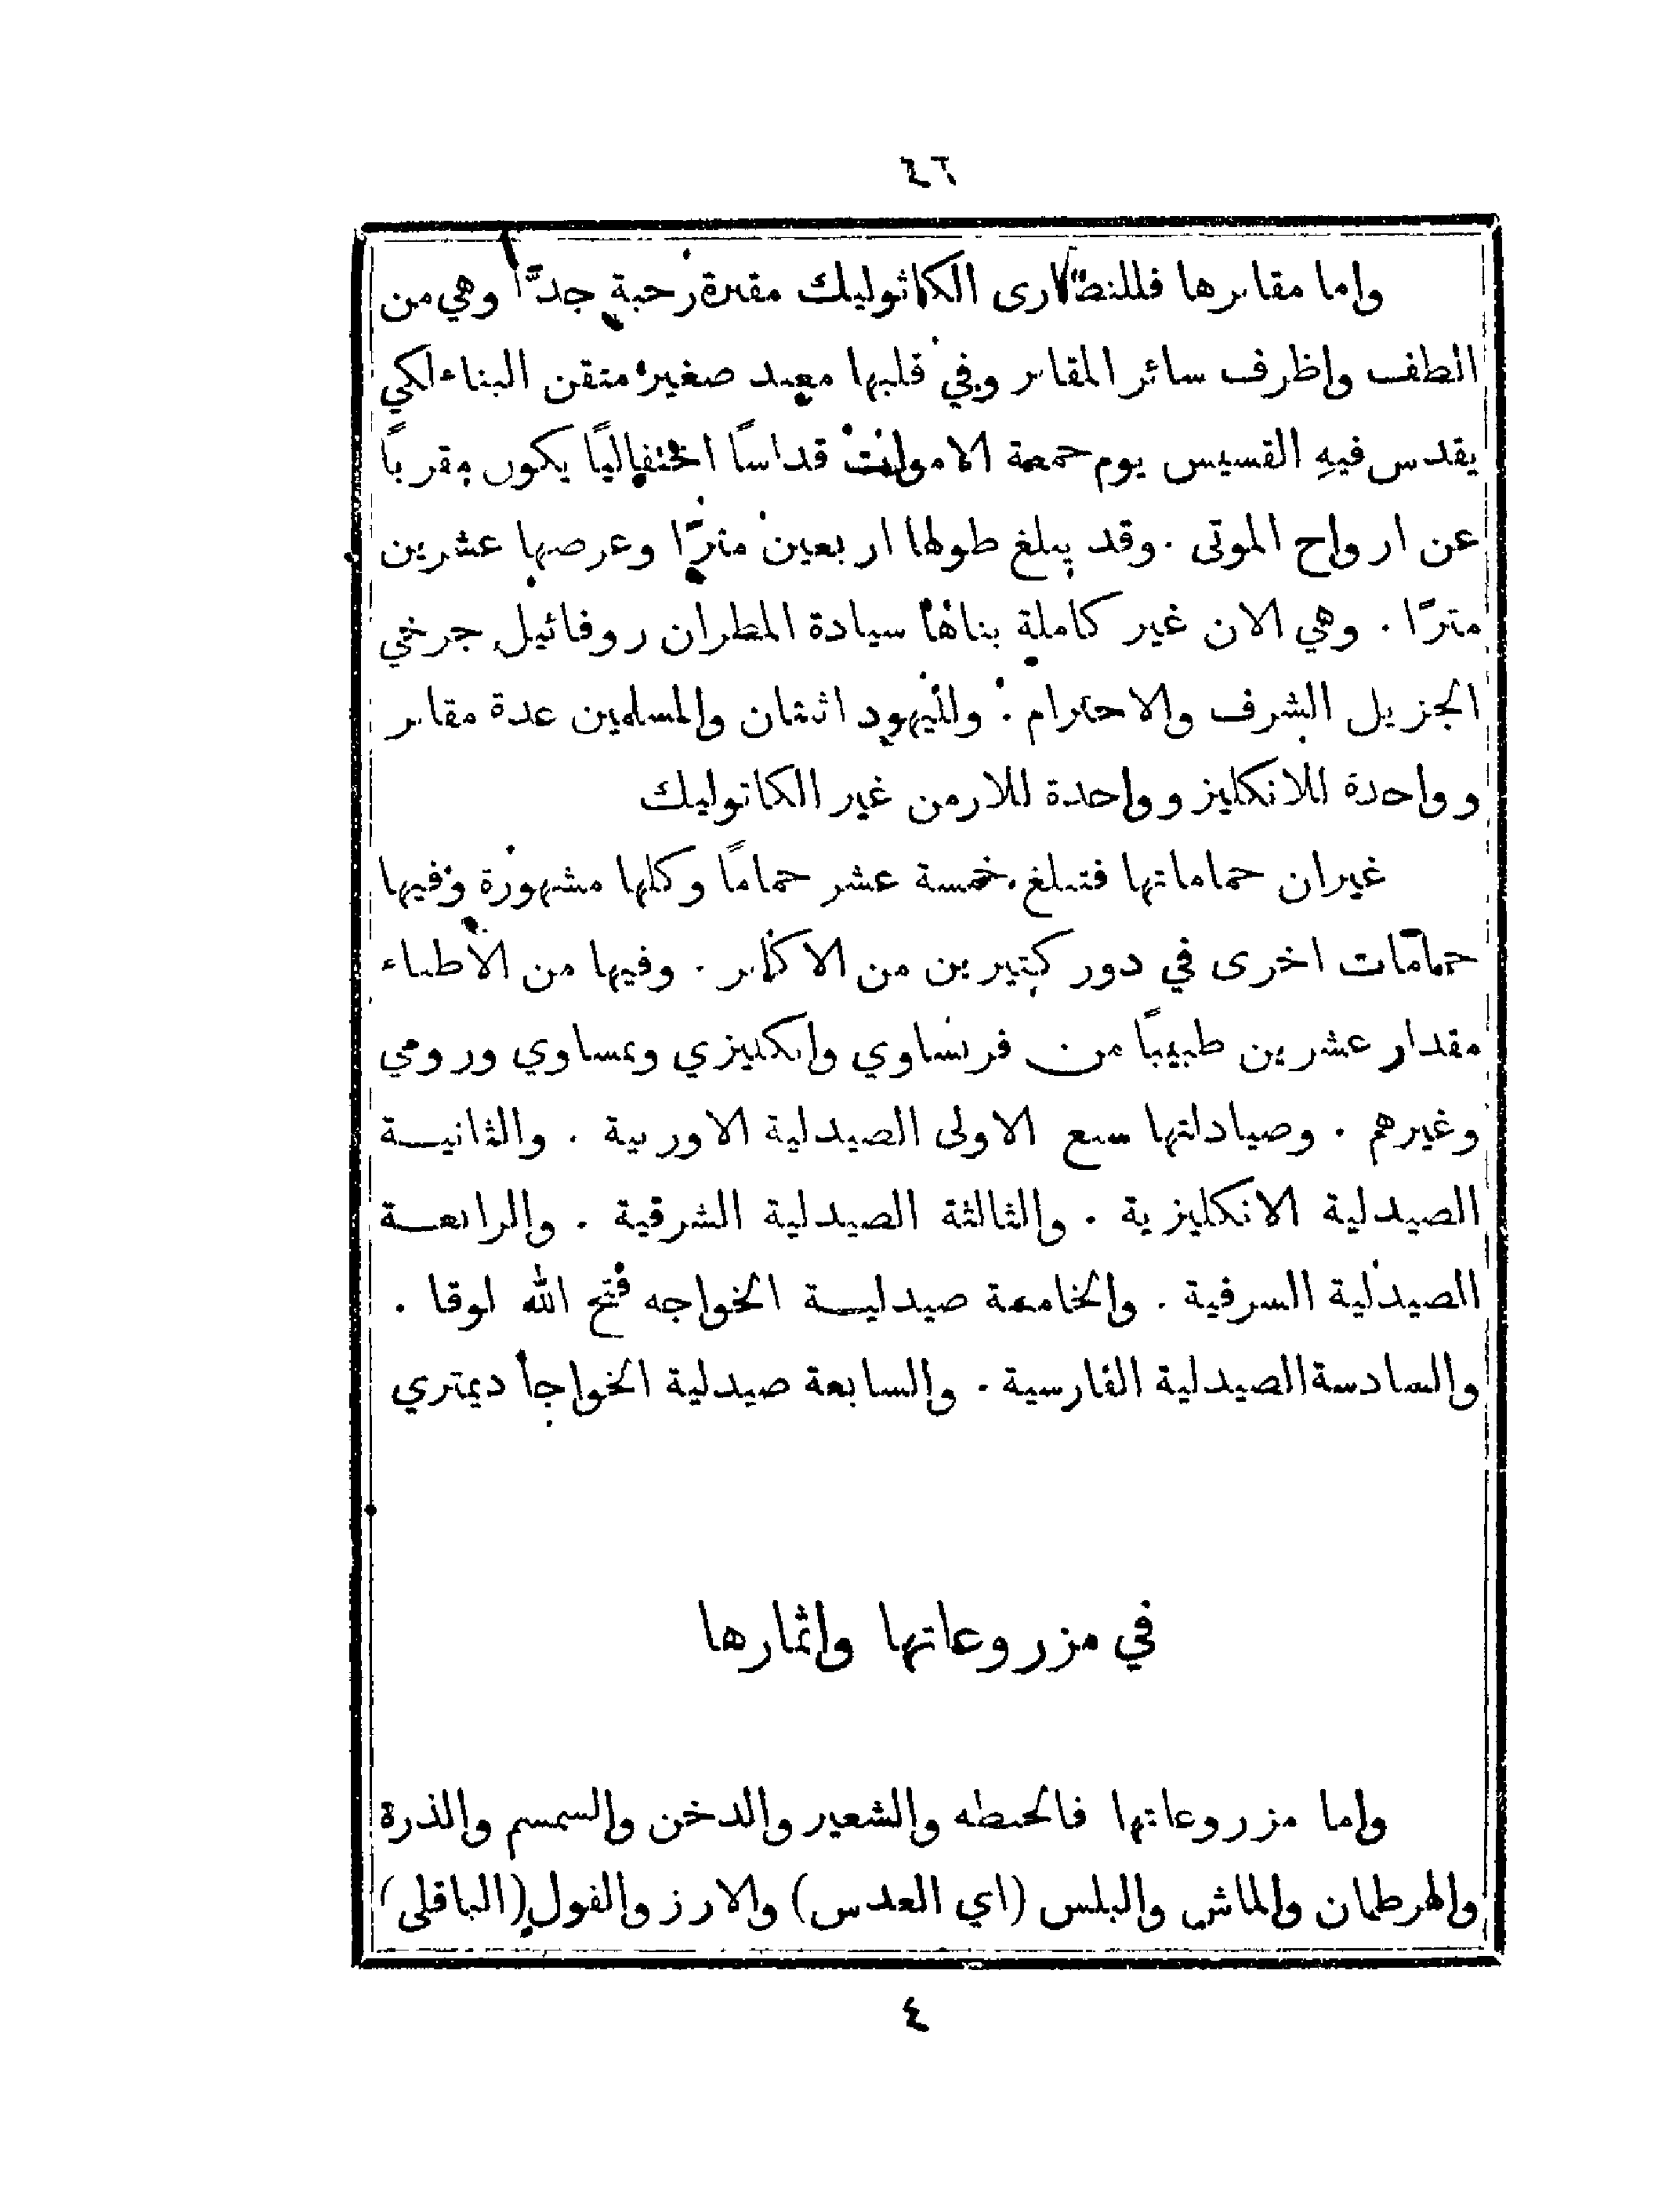 ٤٦
واما مقابرها فللنصارى الكاثوليك مقبرة رحبة جدًّا وهي من
الطف واظرف سائر المقابر وفي قلبها معبد صغير متقن البناء لكي
يقدس فيهِ القسيس يوم جمعة الاموات قداسًا احتفاليًا يكون مقربًا
عن ارواح الموتى . وقد يبلغ طولها اربعين مترًا وعرضها عشرين
مترًا . وهي الان غير كاملة بناها سيادة المطران روفائيل جرخي
الجزيل الشرف والاحترام . ولليهود اثنتان وللمسلمين عدة مقابر
وواحدة للانكليز وواحدة للارمن غير الكاثوليك
غيران حماماتها فتبلغ خمسة عشر حمامًا وكلها مشهورة وفيها
حمامات اخرى في دور كثيرين من الاكابر . وفيها من الاطباء
مقدار عشرين طبيبًا من فرنساوي وانكليزي ونمساوي ورومي
وغيرهم . وصيادلتها سبع الاولى الصيدلية الاوربية . والثانيـة
الصيدلية الانكليزية . والثالثة الصيدلية الشرقية . والرابعـة
الصيدلية السرفية . والخامسة صيدليـة الخواجه فتح الله لوقا .
والسادسة الصيدلية الفارسية . والسابعة صيدلية الخواجا ديمتري
في مزروعاتها واثمارها
واما مزروعاتها فالحنطه والشعير والدخن والسمسم والذرة
والهرطمان والماش والبلس (اي العدس) والارز والفول (الباقلى)
٤